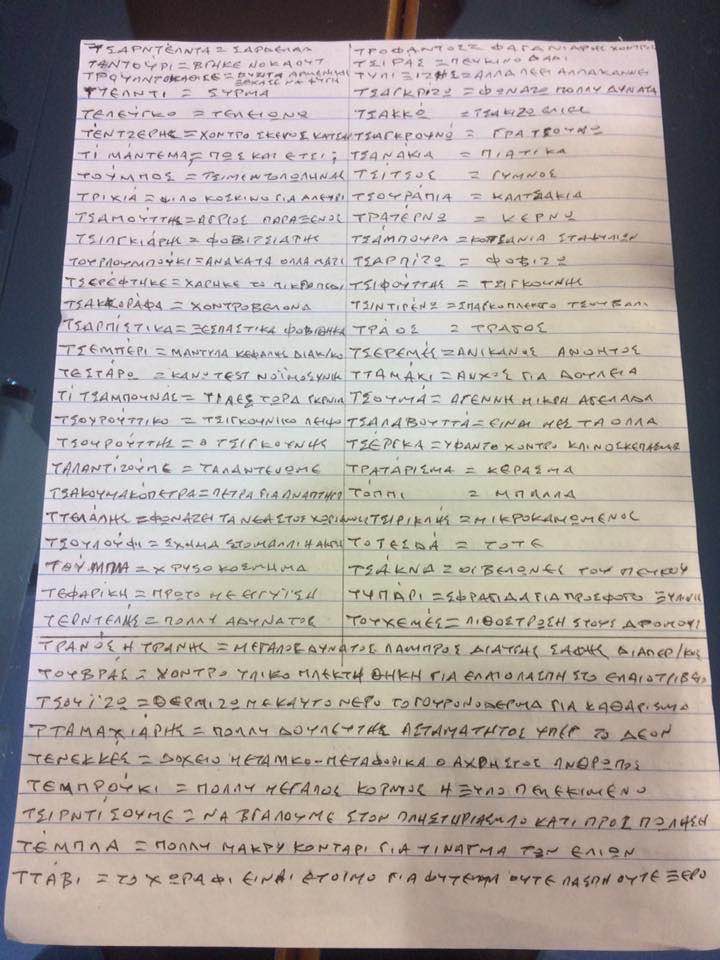 ΤΣΑΡΝΤΕΛΝΤΑ = ΣΑΡΔΕΛΑΑ ΤΡΟΦΑΝΤΟΣ = ΦΑΓΑΝΙΑΡΗΣ ΧΟΝΤΡΟΣ
ΤΑΝΤΟΥΡΙ = ΒΓΗΚΕ ΝΟΚΑΟΥΤ ΤΣΙΡΑΣ = ΠΕΥΚΙΝΟ ΔΑΔΙ
ΞΕΧΑΣΕ ΝΑ ΦΥΓΗ
ΤΤΕΛΝΤΙ = ΣΥΡΜΑ ΤΣΑΓΚΡΙΖΩ = ΦΩΝΑΖΩ ΠΟΛΛΥ ΔΥΝΑΤΑ
ΤΕΛΕΥΓΚΟ = ΤΕΛΕΙΩΝΩ ΤΣΑΚΚΩ = ΤΣΑΚΙΖΩ ΕΛΙΕΣ
ΤΕΝΤΖΕΡΗΣ = ΧΟΝΤΡΟ ΣΚΕΒΟΣ ΤΣΑΓΚΡΟΥΝΩ = ΓΡΑΤΣΟΥΝΩ
ΤΙ ΜΑΝΤΕΜΑ = ΠΩΣ ΚΑΙ ΕΤΣΙ ; ΤΣΑΝΑΚΙΑ = ΠΙΑΤΙΚΑ
ΤΟΥΜΠΟΣ = ΤΣΙΜΕΝΤΟΣΩΛΗΝΑΣ ΤΣΙΤΣΟΣ = ΓΥΜΝΟΣ
ΤΡΙΧΙΑ = ΨΙΛΟ ΚΟΣΚΙΝΟ ΓΙΑ ΑΛΕΥΡΙ ΤΣΟΥΡΑΠΙΑ = ΚΑΛΤΣΑΚΙΑ
ΤΣΑΜΟΥΤΤΗΣ = ΑΓΡΙΟΣ ΠΑΡΑΞΕΝΟΣ ΤΡΑΤΕΡΝΩ = ΚΕΡΝΩ
ΤΣΙΛΓΚΙΑΡΗΣ = ΦΟΒΙΤΣΙΑΡΗΣ ΤΣΑΜΠΟΥΡΑ = ΚΟΤΣΑΝΙΑ ΣΤΑΦΥΛΙΩΝ
ΤΟΥΡΛΟΥΜΠΟΥΚΙ = ΑΝΑΚΑΤΑ ΟΛΛΑ ΜΑΖΙ ΤΣΑΡΠΙΖΩ = ΦΟΒΙΖΩ
ΤΣΕΡΕΦΤΗΚΕ = ΧΑΡΗΚΕ ΤΟ ΜΙΚΡΟ ΠΑΙΔΙ ΤΣΙΦΟΥΤΤΑΣ = ΤΣΙΓΚΟΥΝΗΣ
ΤΣΑΚΚΟΡΑΦΑ = ΧΟΝΤΡΟΒΕΛΟΝΑ ΤΣΙΝΤΙΡΕΝΩ = ΣΠΑΓΚΟΠΛΕΚΤΟ ΤΣΟΥΒΑΛΙ
ΤΣΑΡΠΙΣΤΙΚΑ = ΞΕΣΠΑΣΤΙΚΑ ΦΟΒΗΘΗΚΑ ΤΡΑΟΣ = ΤΡΑΓΟΣ
ΤΣΕΜΠΕΡΙ = ΜΑΝΤΥΛΑ ΚΕΦΑΛΗΣ ΔΙΑΚ/ΚΟ ΤΣΕΡΕΜΕΣ = ΑΝΙΚΑΝΟΣ ΑΝΟΗΤΟΣ
ΤΕΣΤΑΡΩ = ΚΑΝΩ TEST ΝΟΪΜΟΣΥΝΗΣ ΤΤΑΜΑΚΙ = ΑΝΧΟΣ ΓΙΑ ΔΟΥΛΕΙΑ
ΤΙ ΤΣΑΜΠΟΥΝΑΣ = ΤΩΡΑ ΓΚΡΙΝΙΑ ΤΣΟΥΜΑ = ΑΓΕΝΝΗ ΜΙΚΡΗ ΑΓΕΛΑΔΑ
ΤΣΟΥΡΟΥΤΤΙΚΟ = ΤΣΙΓΚΟΥΝΙΚΟ ΛΕΙΨΟ ΤΣΑΛΑΒΟΥΤΤΑ = ΕΙΝΑΙ ΜΕΣ ΤΑ ΟΛΛΑ
ΤΣΟΥΡΟΥΤΤΗΣ = Ο ΤΣΙΓΚΟΥΝΗΣ ΤΣΕΡΓΚΑ = ΥΦΑΝΤΟ ΧΟΝΤΡΟ ΚΛΙΝΟΣΚΕΠΑΣΜΑ
ΤΑΛΑΝΤΙΖΟΥΜΕ = ΤΑΛΑΝΤΕΥΩΜΕ ΤΡΑΤΑΡΙΣΜΑ = ΚΕΡΑΣΜΑ
ΤΣΑΚΟΥΜΑΚΟΠΕΤΡΑ = ΠΕΤΡΑ ΓΙΑ ΑΝΑΠΤΗΡΑ ΤΟΠΠΙ = ΜΠΑΛΛΑ
ΤΤΕΛΑΛΗΣ = ΦΩΝΑΖΕΙ ΤΑ ΝΕΑ ΣΤΟΥΣ ΧΩΡΙΑΝΟΥΣ ΤΣΙΡΙΚΛΗΣ = ΜΙΚΡΟΚΑΜΩΜΕΝΟΣ
ΤΣΟΥΛΟΥΦΙ = ΣΧΗΜΑ ΣΤΟ ΜΑΛΛΙ Η ΑΚΡΗ ΤΟΤΕΣΔΑ = ΤΟΤΕ
ΤΟΥΜΠΛΑ = ΧΡΥΣΟ ΚΟΣΜΗΜΑ ΤΣΑΚΝΑ = ΟΙ ΒΕΛΩΝΕΣ ΤΟΥ ΠΕΥΚΟΥ
ΤΕΦΑΡΙΚΗ = ΠΡΩΤΟ ΜΕ ΕΓΓΥΙΣΗ ΤΥΠΑΡΙ = ΣΦΡΑΓΙΔΑ ΓΙΑ ΠΡΟΣΦΟΡΟ ΞΥΛΙΝΗ
ΤΕΡΝΤΕΛΗΣ = ΠΟΛΛΥ ΑΔΥΝΑΤΟΣ ΤΟΥΧΕΜΕΣ = ΛΙΘΟΣΤΡΩΣΗ ΣΤΟΥΣ ΔΡΟΜΟΥΣ
ΤΡΑΝΟΣ Η ΤΡΑΝΗΣ = ΜΕΓΑΛΟΣ ΔΥΝΑΤΟΣ ΛΑΜΠΡΟΣ ΔΙΑΥΓΗΣ ΣΑΦΗΣ ΔΙΑΠΕΡ/ΚΟΣ
ΤΟΥΒΡΑΣ = ΧΟΝΤΡΟ ΥΛΙΚΟ ΠΛΕΚΤΗ ΘΗΚΗ ΓΙΑ ΕΛΑΙΟΛΑΣΠΗ ΣΤΟ ΕΛΑΙΟΤΡΙΒΕΙΟ
ΤΣΟΥΪΖΩ = ΘΕΡΜΙΖΩ ΜΕ ΚΑΥΤΟ ΝΕΡΟ ΤΟ ΓΟΥΡΟΝΟΔΕΡΜΑ ΓΙΑ ΚΑΘΑΡΙΣΜΟ
ΤΤΑΜΑΧΙΑΡΗΣ = ΠΟΛΛΥ ΔΟΥΛΕΥΤΗΣ ΑΣΤΑΜΑΤΗΤΟΣ ΥΠΕΡ ΤΟ ΔΕΟΝ
ΤΕΝΕΚΚΕΣ = ΔΟΧΕΙΟ ΜΕΤΑΛΙΚΟ - ΜΕΤΑΦΟΡΙΚΑ Ο ΑΧΡΗΣΤΟΣ ΑΝΘΡΩΠΟΣ
ΤΕΜΠΡΟΥΚΙ = ΠΟΛΛΥ ΜΕΓΑΛΟΣ ΚΟΡΜΟΣ Η ΞΥΛΟ ΠΕΛΕΚΙΜΕΝΟ
ΤΣΙΡΝΤΙΣΟΥΜΕ = ΝΑ ΒΓΑΛΟΥΜΕ ΣΤΟΝ ΠΛΗΣΤΥΡΙΑΣΜΟ ΚΑΤΙ ΠΡΟΣ ΠΩΛΗΣΗ
ΤΕΜΠΛΑ = ΠΟΛΛΥ ΜΑΚΡΥ ΚΟΝΤΑΡΙ ΓΙΑ ΤΙΝΑΓΜΑ ΤΩΝ ΕΛΙΩΝ
ΤΤΑΒΙ = ΤΟ ΧΩΡΑΦΙ ΕΙΝΑΙ ΕΤΟΙΜΟ ΓΙΑ ΦΥΤΕΥΜΑ ΟΥΤΕ ΛΑΣΠΗ ΟΥΤΕ ΞΕΡΟ